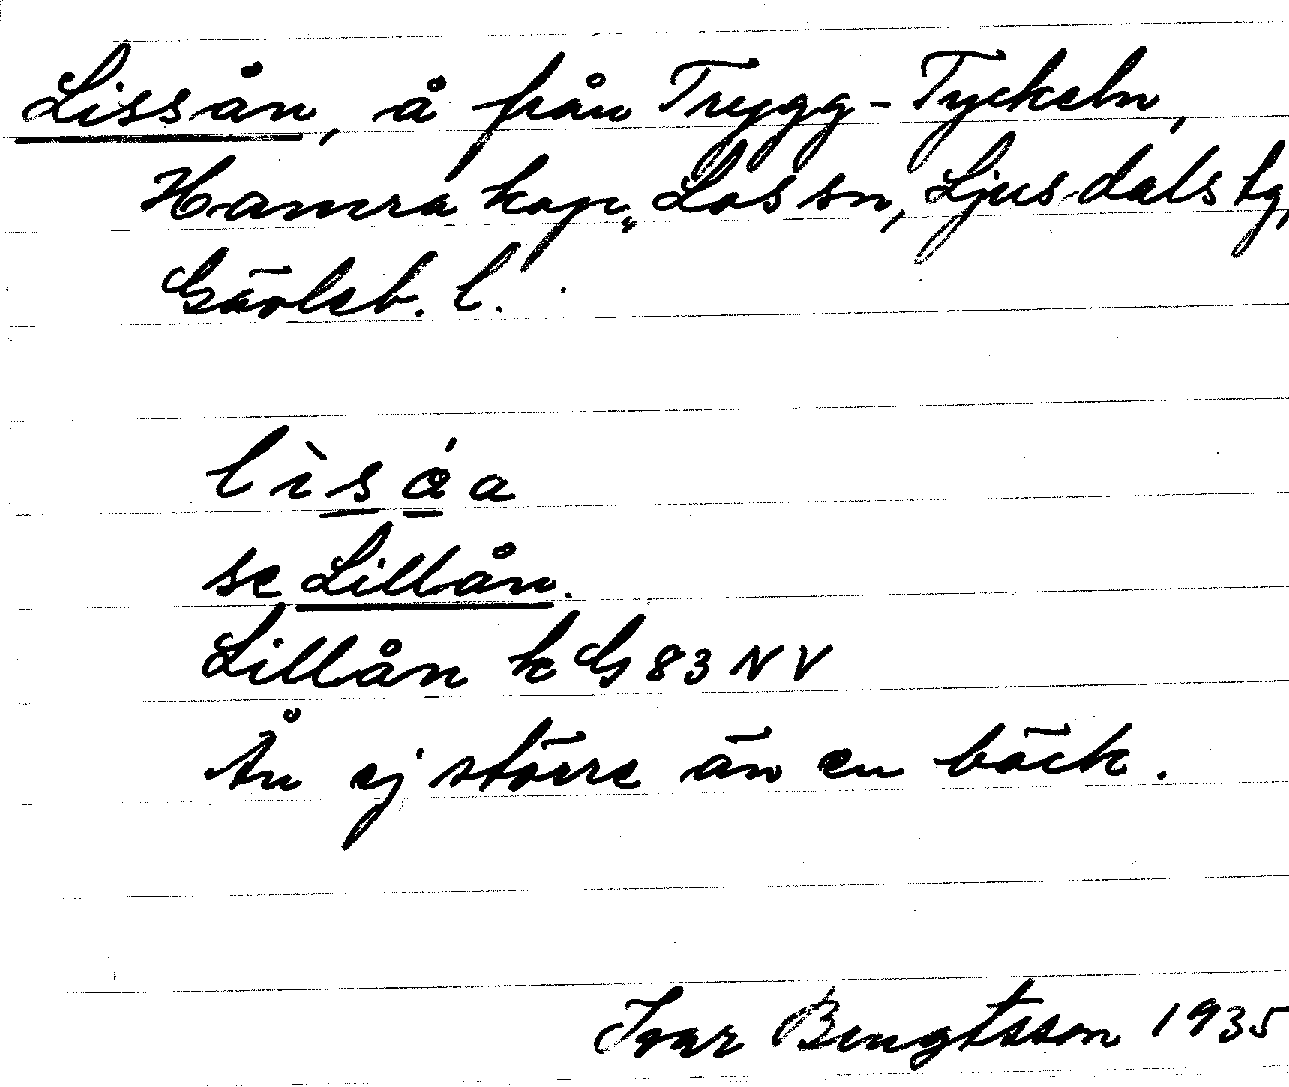 Lissån, å från Trygg-Tyckeln,
Hamra kap., Los sn, Ljusdals tg,
Gävleb. l.
lìsåa
se Lillån.
Lillån k G 83 NV
Ån ej större än en bäck.
Ivar Bengtsson 1935